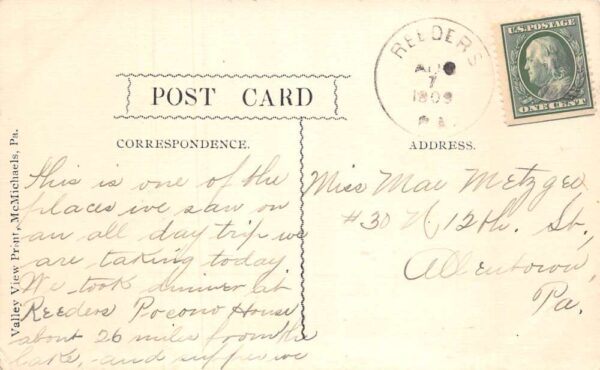 REEDERS
AUG
7
1909
PA.
U.S. POSTAGE
ONE CENT
POST CARD
CORRESPONDENCE.
ADDRESS.
Valley View Print, McMichaels, Pa.
This is one of the
places we saw on
an all day trip we
are taking today
We took dinner at
Reeders Pocono House
about 26 miles from the
lake, and supper we
Miss Mae Metzger,
#30 N, 12th. St.,
Allentown,
Pa.